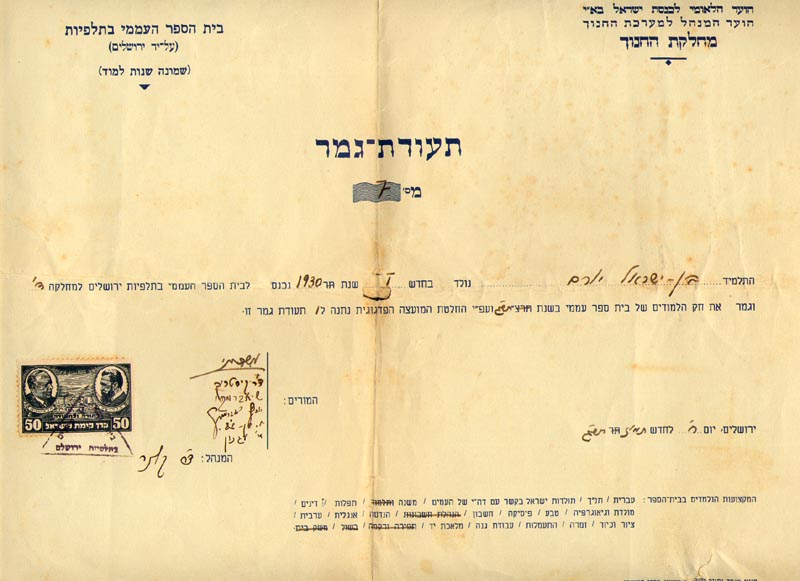 הועד הלאומי לכנסת ישראל בא"י
הועד המנהל למערכת החנוך
מחלקת החנוך
בית הספר העממי בתלפיות
(על-יד ירושלים)
(שמונה שנות למוד)
תעודת-גמר
מס' 7
התלמיד בן-ישראל יורם נולד בחדש I שנת תר 1930 נכנס לבית הספר העממי בתלפיות ירושלים למחלקה ד'
וגמר את חק הלמודים של בית ספר עממי בשנת תרצ תש"ג ועפ"י החלטת המועצה הפדגוגית נתנה לו תעודת גמר זו.
המורים:
50 קרן קימת לישראל 50
בתלפיות ירושלם
ירושלים, יום ה' לחדש תמוז תר תש"ג
המנהל: ד"ר
המקצועות הנלמדים בבית-הספר: עברית / תנ"ך / תולדות ישראל בקשר עם דה"י של העמים / משנה ותלמוד / תפלות / דינים /
מולדת וגיאוגרפיה / טבע / פיסיקה / חשבון / הנהלת חשבונות / הנדסה / אנגלית / ערבית /
ציור וכיור / זמרה / התעמלות / עבודת גנה / מלאכת יד / תפירה ורקמה / בשול / משק בית.